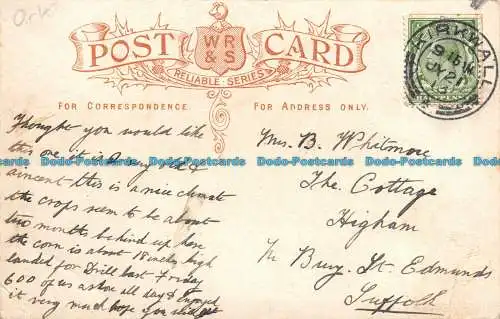 Ork
POST CARD
WR
& S
RELIABLE SERIES
FOR CORRESPONDENCE.
FOR ADDRESS ONLY.
KIRKWALL
9.15
JY 21
Thought you would like
this one it is a very old &
aincent this is a nice climat
the crops seem to be about
two months behind up here
the corn is about 18 inches high
landed for Drill last Friday
600 of us ashore all day & enjoyed
it very much hope you
Mrs. B. Whitmore
The Cottage
Higham
Nr Bury St. Edmunds
Suffolk
Dodo-Postcards Dodo-Postcards Dodo-Postcards Dodo-Postcards